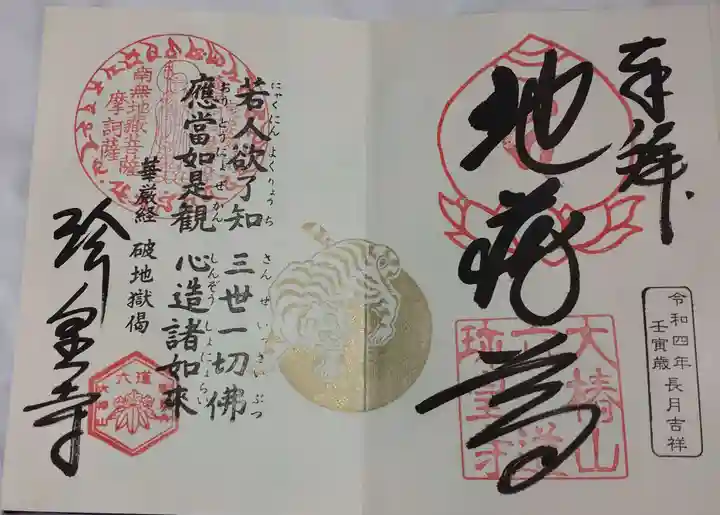 奉拝
地蔵尊
大椿山
六道
珍皇寺
令和四年長月吉祥
壬寅歳
にゃくにん よくりょうち
若人欲了知
さんぜ いっさいぶつ
三世一切佛
おうとうにょぜかん
應當如是觀
しんぞう しょにょらい
心造諸如來
華厳経 破地獄偈
南無地蔵菩薩
摩訶薩
珍皇寺
六道